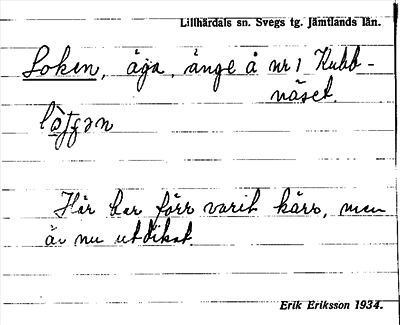 Lillhärdals sn. Svegs tg. Jämtlands län.
Loken, äga, änge å nr 1 Kubb-
näset.
Här har förr varit kärr, men
är nu utdikat
Erik Eriksson 1934.